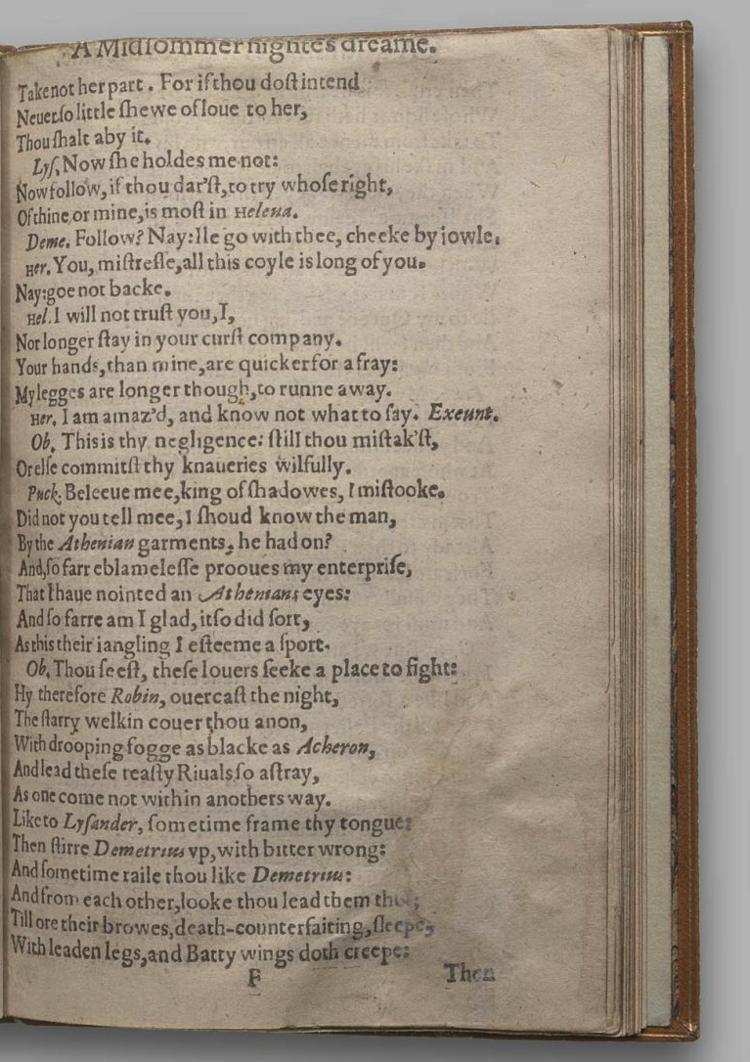 A Midsommer nightes dreame.
Take not her part. For if thou dost intend
Neuer so little shewe of loue to her,
Thou shalt aby it.
Lys. Now she holdes me not:
Now follow, if thou dar'st, to try whose right,
Of thine or mine, is most in Helena.
Deme. Follow? Nay: Ile go with thee, cheeke by iowle.
Her. You, mistresse, all this coyle is long of you.
Nay: goe not backe.
Hel. I will not trust you, I,
Nor longer stay in your curst company.
Your hands, than mine, are quicker for a fray:
My legges are longer though, to runne away.
Her. I am amaz'd, and know not what to say. Exeunt.
Ob. This is thy negligence: still thou mistak'st,
Or else committst thy knaueries wilfully.
Puck. Beleeue mee, king of shadowes, I mistooke.
Did not you tell mee, I shoud know the man,
By the Athenian garments, he had on?
And, so farr e blamelesse prooues my enterprise,
That I haue nointed an Athenians eyes:
And so farre am I glad, it so did sort,
As this their iangling I esteeme a sport.
Ob. Thou seest, these louers seeke a place to fight:
Hy therefore Robin, ouercast the night,
The starry welkin couer thou anon,
With drooping fogge as blacke as Acheron,
And lead these teasty Riuals so astray,
As one come not within anothers way.
Like to Lysander, sometime frame thy tongue:
Then stirre Demetrius vp, with bitter wrong:
And sometime raile thou like Demetrius:
And from each other, looke thou lead them thus;
Till ore their browes, death-counterfaiting, sleepe,
With leaden legs, and Batty wings doth creepe:
F Then